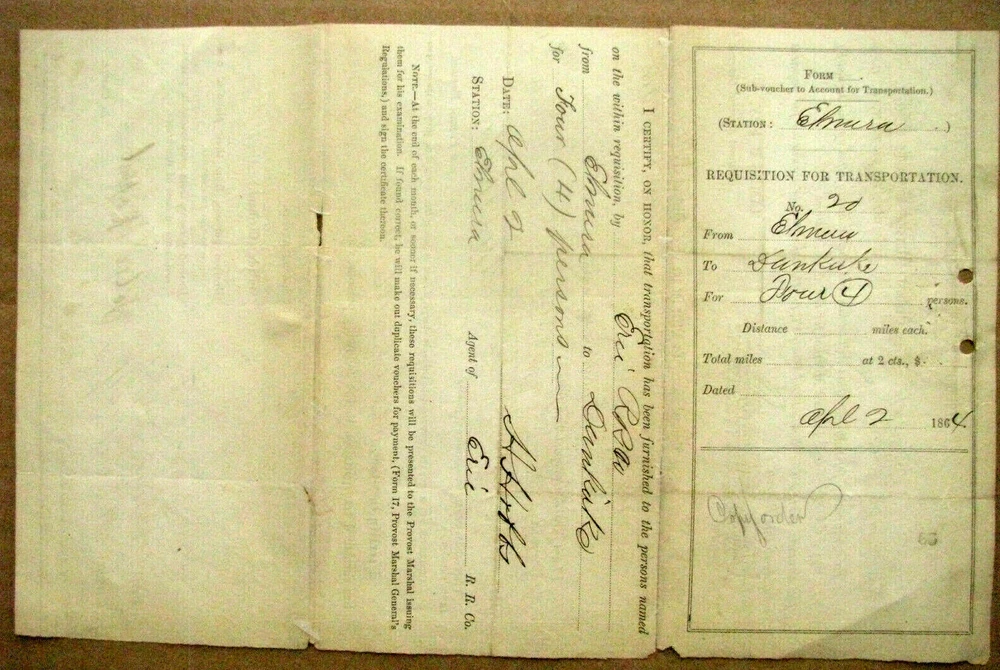 FORM ___.
(Sub-voucher to Account for Transportation.)
(STATION: Elmira )
REQUISITION FOR TRANSPORTATION.
No. 20
From Elmira
To Dunkirk
For Four (4) persons.
Distance miles each.
Total miles at 2 cts., $
Dated
Apl 2 1864
Copy order
65
I CERTIFY, ON HONOR, that transportation has been furnished to the persons named
on the within requisition, by Erie R Ro
from Elmira to Dunkirk
for Four (4) persons
DATE: Apl 2
STATION: Elmira Agent of Erie R. R. Co.
NOTE.—At the end of each month, or sooner if necessary, these requisitions will be presented to the Provost Marshal issuing
them for his examination. If found correct, he will make out duplicate vouchers for payment, (Form 17, Provost Marshal General's
Regulations,) and sign the certificate thereon.